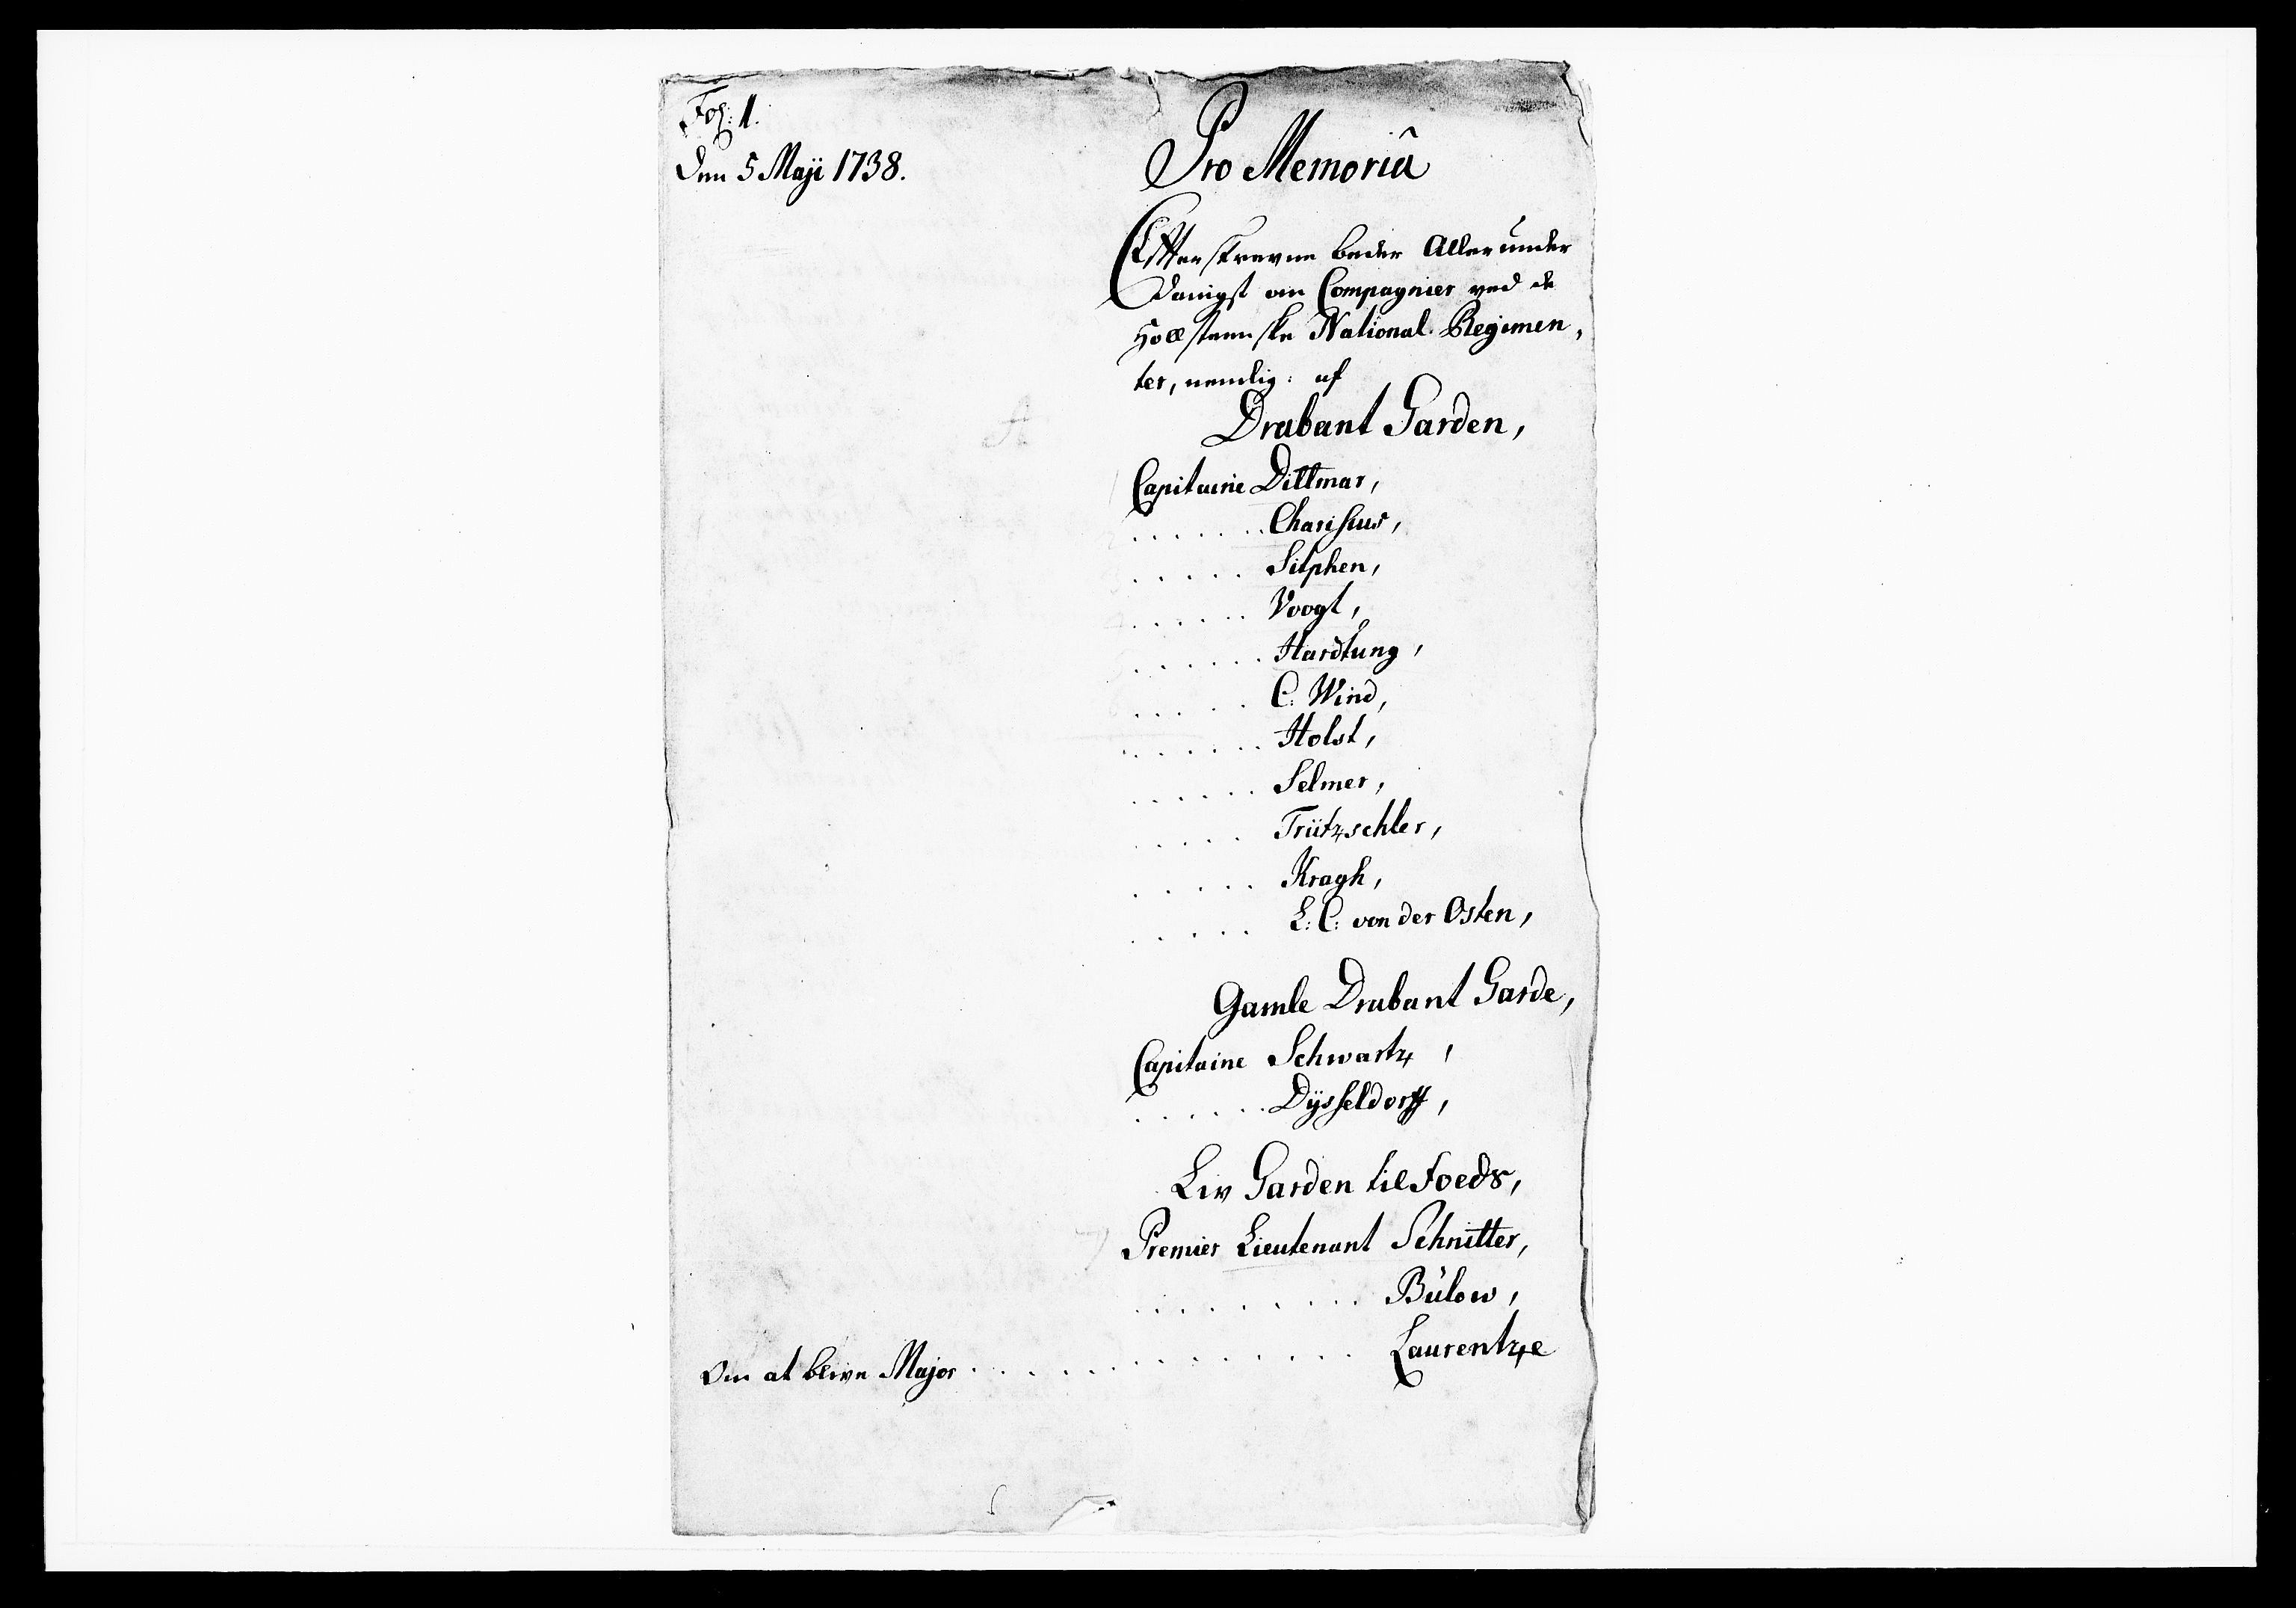 Fol: 1.
Den 5 Maji 1738.
Pro Memoriâ
Efterskrevne beder Allerunder
danigst om Compagnier ved de
Hollsteenske National Regimen,
ter, nemlig: af
Drabant Garden,
Capitaine Dittmar,
. . . . . . . Charisius,
. . . . . Sitphen,
. . . . . . Voogt,
. . . . . . Hardtung,
. . . . . C: Wind,
. . . . . . Holst,
. . . . . . Selmer,
. . . . . Trützschler,
. . . . . Kragh,
. . . . . L: C: von der Osten,
Gamle Drabant Garde,
Capitaine Schwartz,
. . . . . . Dÿsseldorff,
Liv Garden til Foeds,
Premier Lieutenant Schnitter,
. . . . . . . . Bülow,
Om at blive Major . . . . . . . . . . . . . Laurentze